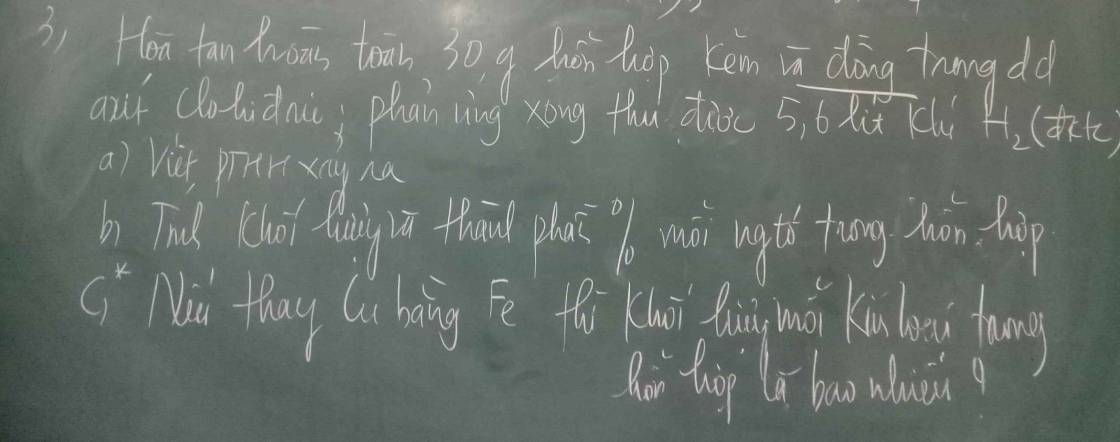 3, Hoà tan hoàn toàn 30 g hỗn hợp kẽm và đồng trong dd
axit clohiđric; phản ứng xong thu được 5,6 lít khí H₂ (đktc)
a) Viết PTHH xảy ra
b, Tính khối lượng và thành phần % mỗi ngtố trong hỗn hợp
c,* Nếu thay Cu bằng Fe thì khối lượng mỗi kim loại trong
hỗn hợp là bao nhiêu?